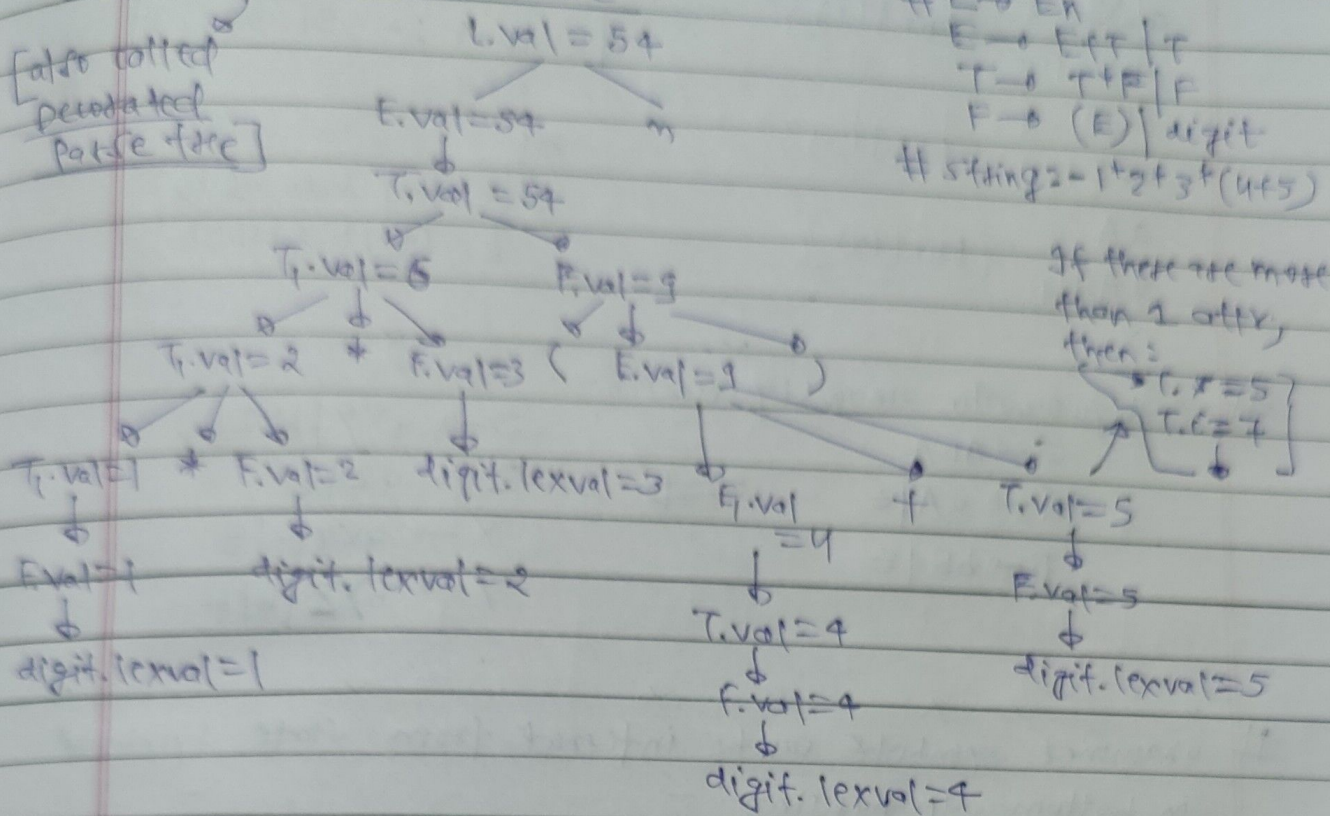 [also called
Decorated
Parse tree]
L.val = 54
E.val = 54
n
T.val = 54
T₁.val = 6
F.val = 9
T₁.val = 2 * F.val = 3 ( E.val = 9 )
T₁.val = 1 * F.val = 2 digit.lexval = 3
E₁.val
= 4
+
T.val = 5
F.val = 1 digit.lexval = 2
F.val = 5
digit.lexval = 1
T.val = 4
digit.lexval = 5
F.val = 4
digit.lexval = 4
En
E → E+T | T
T → T*F | F
F → (E) | digit
# string = 1*2*3*(4+5)
If there are more
than 1 attr,
then:
= 5
= 7